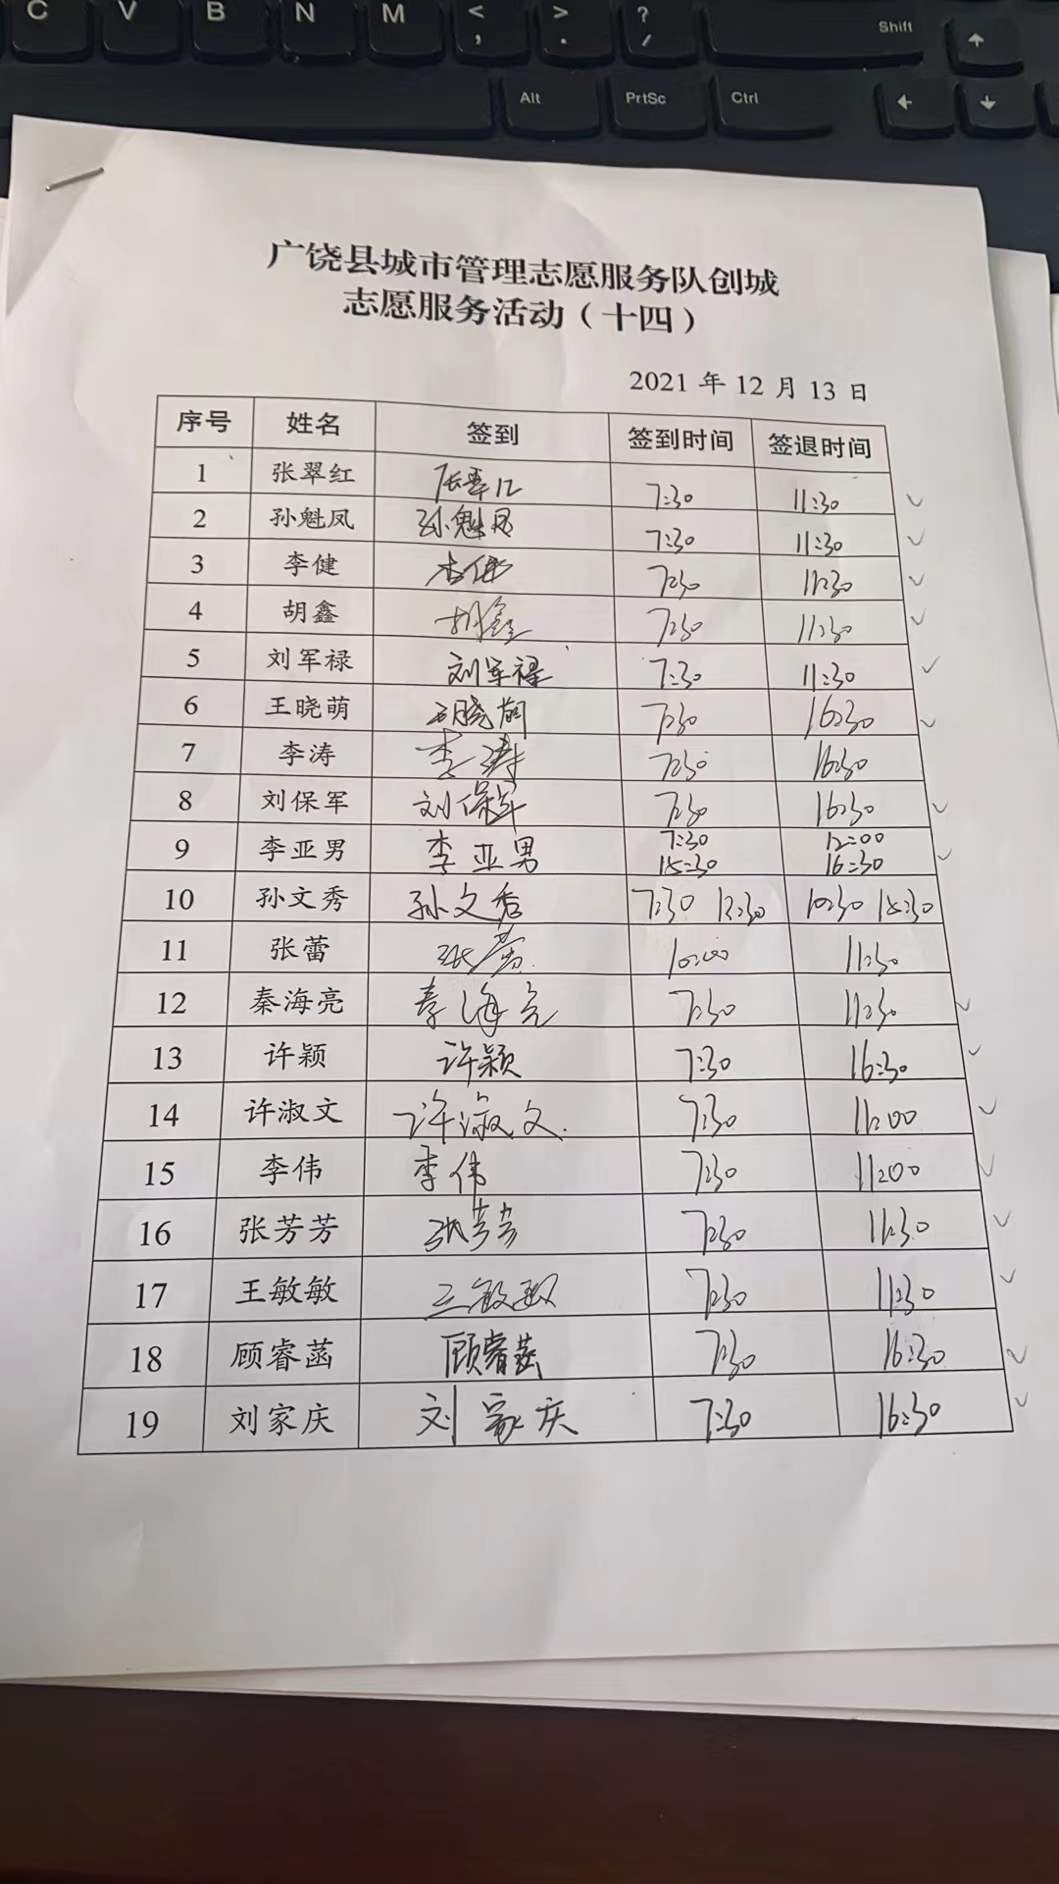 C V B N M < , > . ? / Shift ↑
Alt PrtSc Ctrl ← ↓
广饶县城市管理志愿服务队创城
志愿服务活动（十四）
2021 年 12 月 13 日
序号 姓名 签到 签到时间 签退时间
1 张翠红 张翠红 7:30 11:30
2 孙魁凤 孙魁凤 7:30 11:30
3 李健 李健 7:30 11:30
4 胡鑫 胡鑫 7:30 11:30
5 刘军禄 刘军禄 7:30 11:30
6 王晓萌 王晓萌 7:30 16:30
7 李涛 李涛 7:30 16:30
8 刘保军 刘保军 7:30 16:30
9 李亚男 李亚男 7:30 12:00
15:30 16:30
10 孙文秀 孙文秀 7:30 12:30 10:30 15:30
11 张蕾 张蕾 10:00 11:30
12 秦海亮 秦海亮 7:30 11:30
13 许颖 许颖 7:30 16:30
14 许淑文 许淑文 7:30 11:00
15 李伟 李伟 7:30 11:00
16 张芳芳 张芳芳 7:30 11:30
17 王敏敏 王敏敏 7:30 11:30
18 顾睿菡 顾睿菡 7:30 16:30
19 刘家庆 刘家庆 7:30 16:30